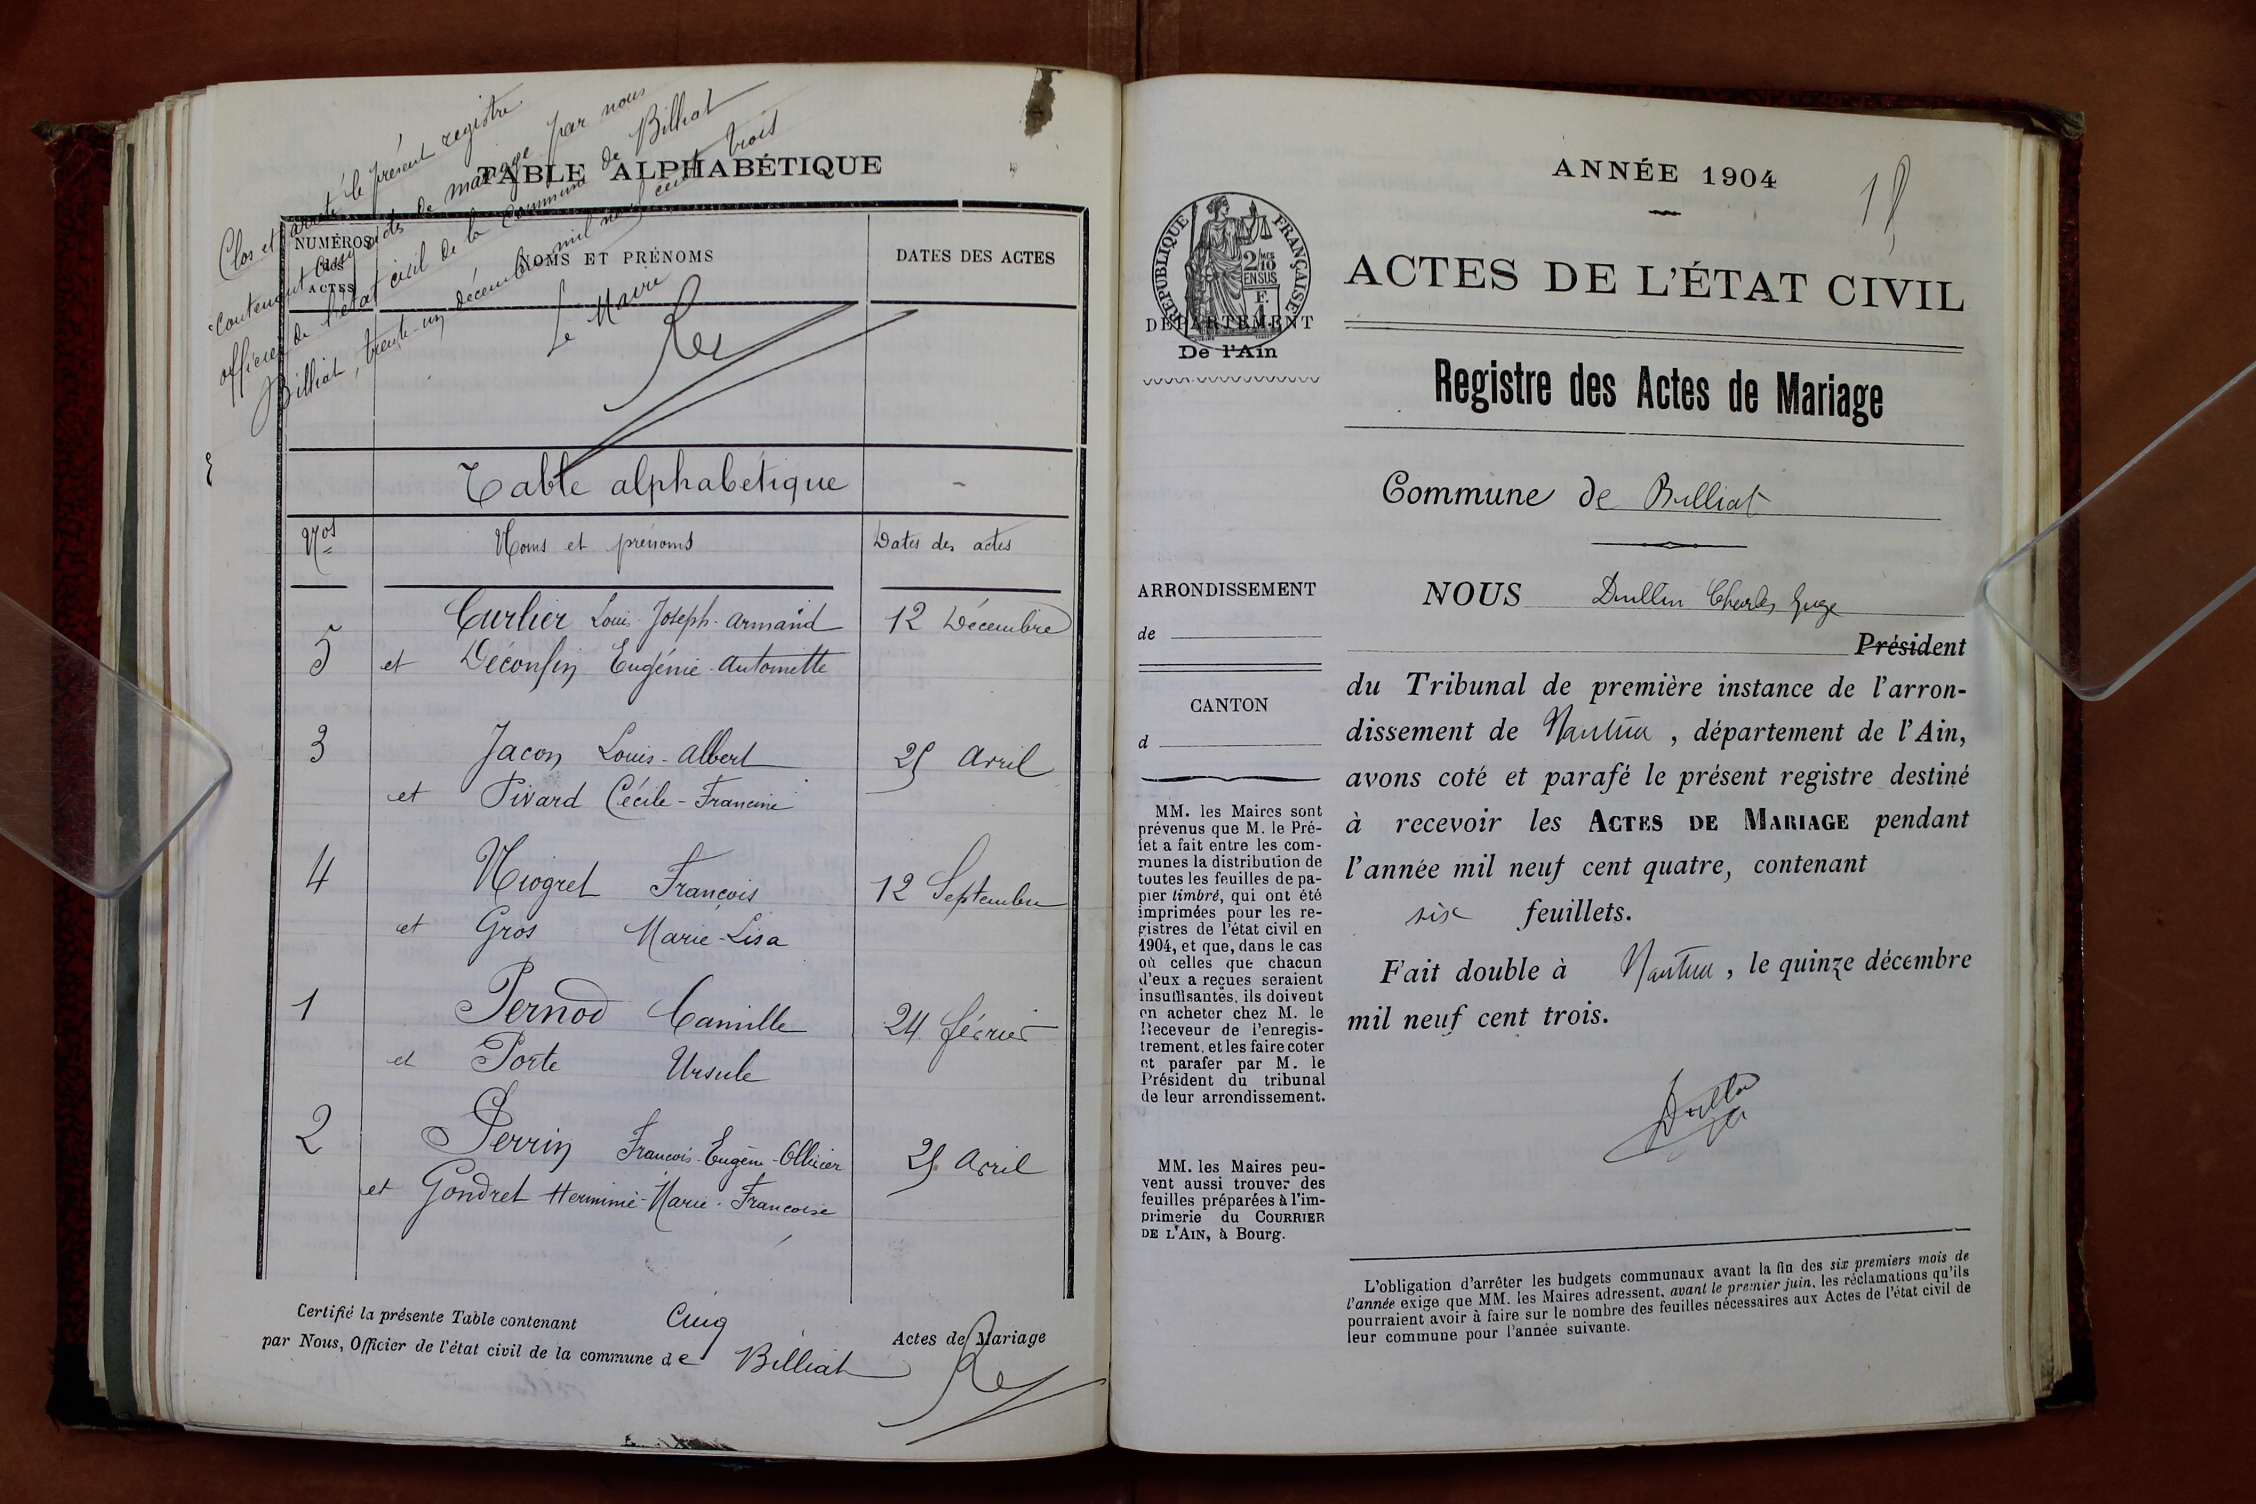 Clos et arrêté le présent registre
contenant cinq actes de mariage par nous
officier de l'état civil de la Commune de Billiat
Billiat, trente-un décembre mil neuf cent trois
Le Maire
Rey
TABLE ALPHABÉTIQUE
NUMÉROS DES ACTES
NOMS ET PRÉNOMS
DATES DES ACTES
Table alphabétique -
Nos Noms et prénoms Dates des actes
Curlier Louis-Joseph-Armand 12 Décembre
5 et Déconfin Eugénie-Antoinette
3 Jacon Louis-Albert 25 Avril
et Pivard Cécile-Francine
4 Niogret François 12 Septembre
et Gros Marie-Lisa
1 Pernod Camille 24 février
et Porte Ursule
2 Perrin François-Eugène-Ollivier 25 Avril
et Gondret Herminie-Marie-Françoise
Certifié la présente Table contenant Cinq Actes de Mariage
par Nous, Officier de l'état civil de la commune de Billiat
Rey
ANNÉE 1904
RÉPUBLIQUE FRANÇAISE
2/10 EN SUS
DÉPARTEMENT
De l'Ain
ACTES DE L'ÉTAT CIVIL
Registre des Actes de Mariage
Commune de Billiat
ARRONDISSEMENT
de
CANTON
d
MM. les Maires sont
prévenus que M. le Pré-
fet a fait entre les com-
munes la distribution de
toutes les feuilles de pa-
pier timbré, qui ont été
imprimées pour les re-
gistres de l'état civil en
1904, et que, dans le cas
où celles que chacun
d'eux a reçues seraient
insuffisantes, ils doivent
en acheter chez M. le
Receveur de l'enregis-
trement, et les faire coter
et parafer par M. le
Président du tribunal
de leur arrondissement.
MM. les Maires peu-
vent aussi trouver des
feuilles préparées à l'im-
primerie du COURRIER
DE L'AIN, à Bourg.
NOUS Dullin Charles juge
Président
du Tribunal de première instance de l'arron-
dissement de Nantua, département de l'Ain,
avons coté et parafé le présent registre destiné
à recevoir les ACTES DE MARIAGE pendant
l'année mil neuf cent quatre, contenant
six feuillets.
Fait double à Nantua, le quinze décembre
mil neuf cent trois.
Dullin
L'obligation d'arrêter les budgets communaux avant la fin des six premiers mois de
l'année exige que MM. les Maires adressent, avant le premier juin, les réclamations qu'ils
pourraient avoir à faire sur le nombre des feuilles nécessaires aux Actes de l'état civil de
leur commune pour l'année suivante.